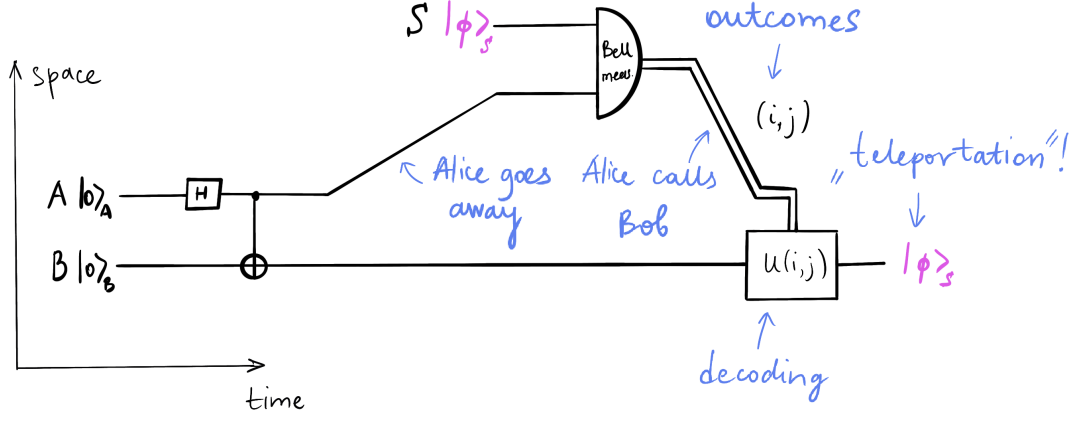 S |ϕ⟩S
Bell
meas.
outcomes
(i,j)
space
A |0⟩A
H
Alice goes
away
Alice calls
Bob
„teleportation"!
B |0⟩B
U(i,j)
|ϕ⟩S
decoding
time